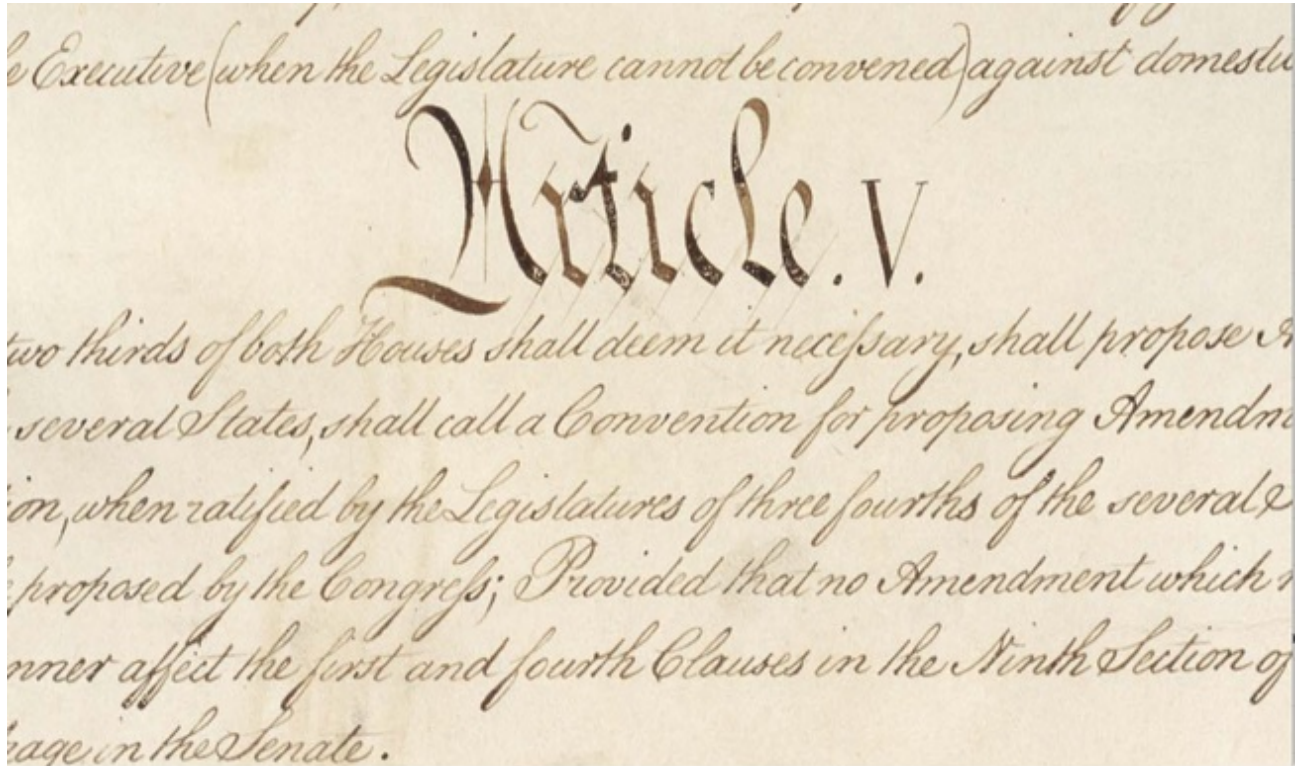 e Executive (when the Legislature cannot be convened) against domestic
Article. V.
two thirds of both Houses shall deem it neceſsary, shall propose
several States, shall call a Convention for proposing Amendm
on, when ratified by the Legislatures of three fourths of the several
e proposed by the Congreſs; Provided that no Amendment which
nner affect the first and fourth Clauses in the Ninth Section of
rage in the Senate.